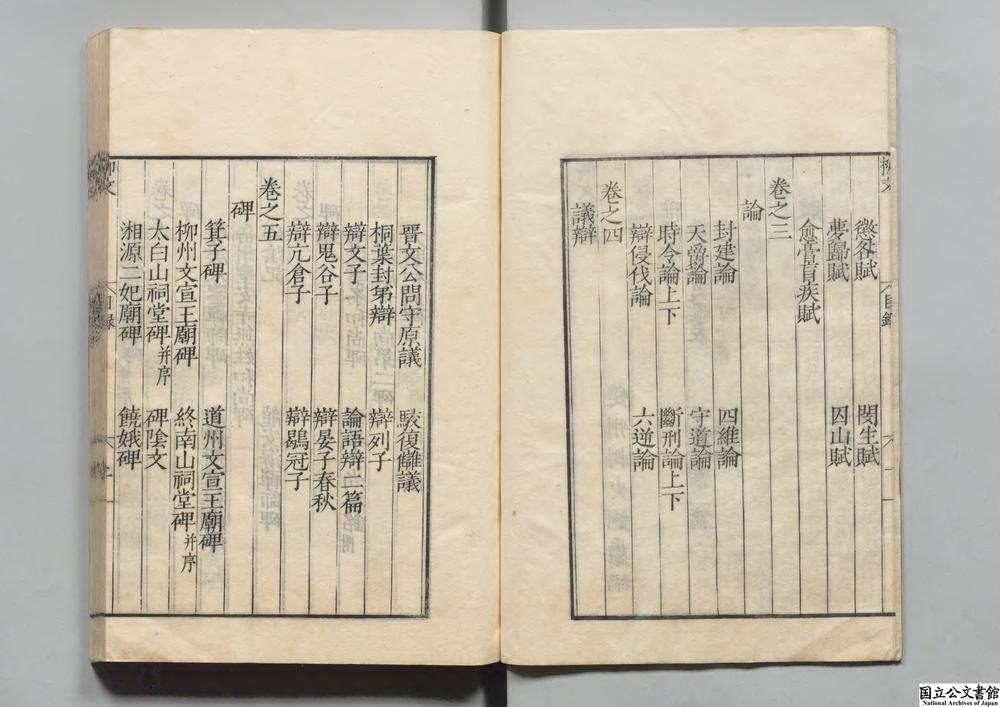 柳文
目錄
懲咎賦 閔生賦
夢歸賦 囚山賦
愈膏肓疾賦
卷之三
論
封建論 四維論
天爵論 守道論
時令論上下 斷刑論上下
辯侵伐論 六逆論
卷之四
議辯
晋文公問守原議 駮復讎議
桐葉封弟辯 辯列子
辯文子 論語辯二篇
辯鬼谷子 辯晏子春秋
辯亢倉子 辯鶡冠子
卷之五
碑
箕子碑 道州文宣王廟碑
柳州文宣王廟碑 終南山祠堂碑并序
太白山祠堂碑并序 碑陰文
湘源二妃廟碑 饒娥碑
柳文
目錄
国立公文書館
National Archives of Japan